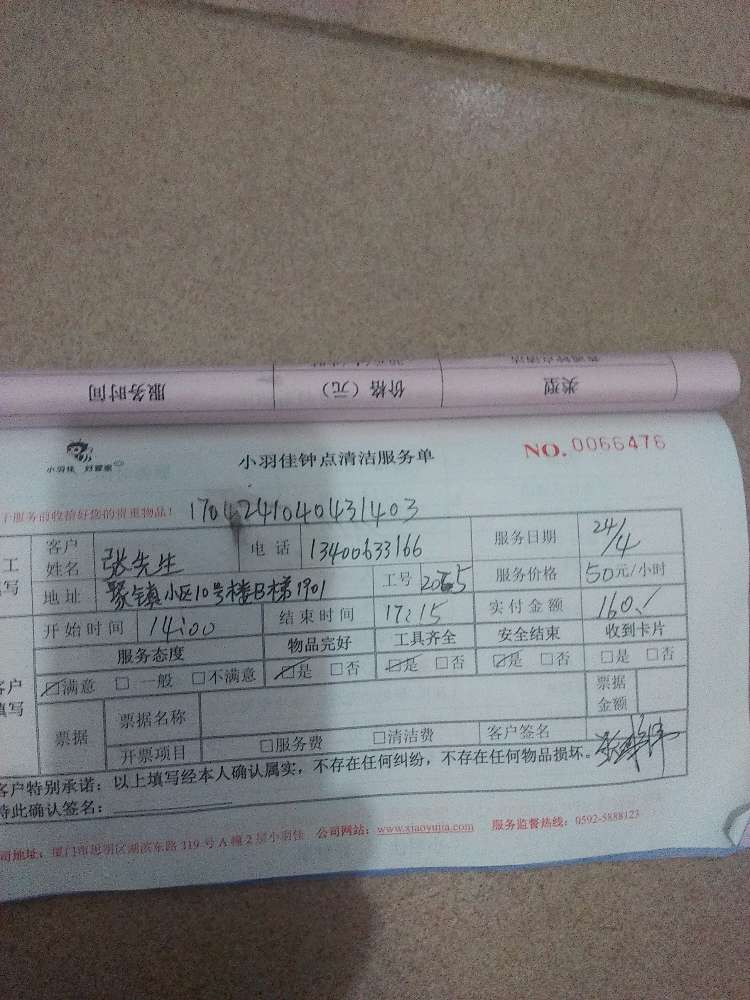 类型 价格（元） 服务时间
小羽佳 好管家
小羽佳钟点清洁服务单 NO.0066476
服务前收拾好您的贵重物品！ 17042410404031403
客户姓名 张先生 电话 13400633166 服务日期 24/4
地址 聚镇小区10号楼B梯1901 工号 服务价格 50元/小时
开始时间 14:00 结束时间 17:15 实付金额 160.
服务态度 物品完好 工具齐全 安全结束 收到卡片
☑满意 □一般 □不满意 ☑是 □否 ☑是 □否 ☑是 □否 □是 □否
票据 票据名称 票据金额
开票项目 □服务费 □清洁费 客户签名
客户特别承诺：以上填写经本人确认属实，不存在任何纠纷，不存在任何物品损坏。
特此确认签名：
司地址：厦门市思明区湖滨东路319号A幢2层小羽佳 公司网站：www.xiaoyujia.com 服务监督热线：0592-5888123